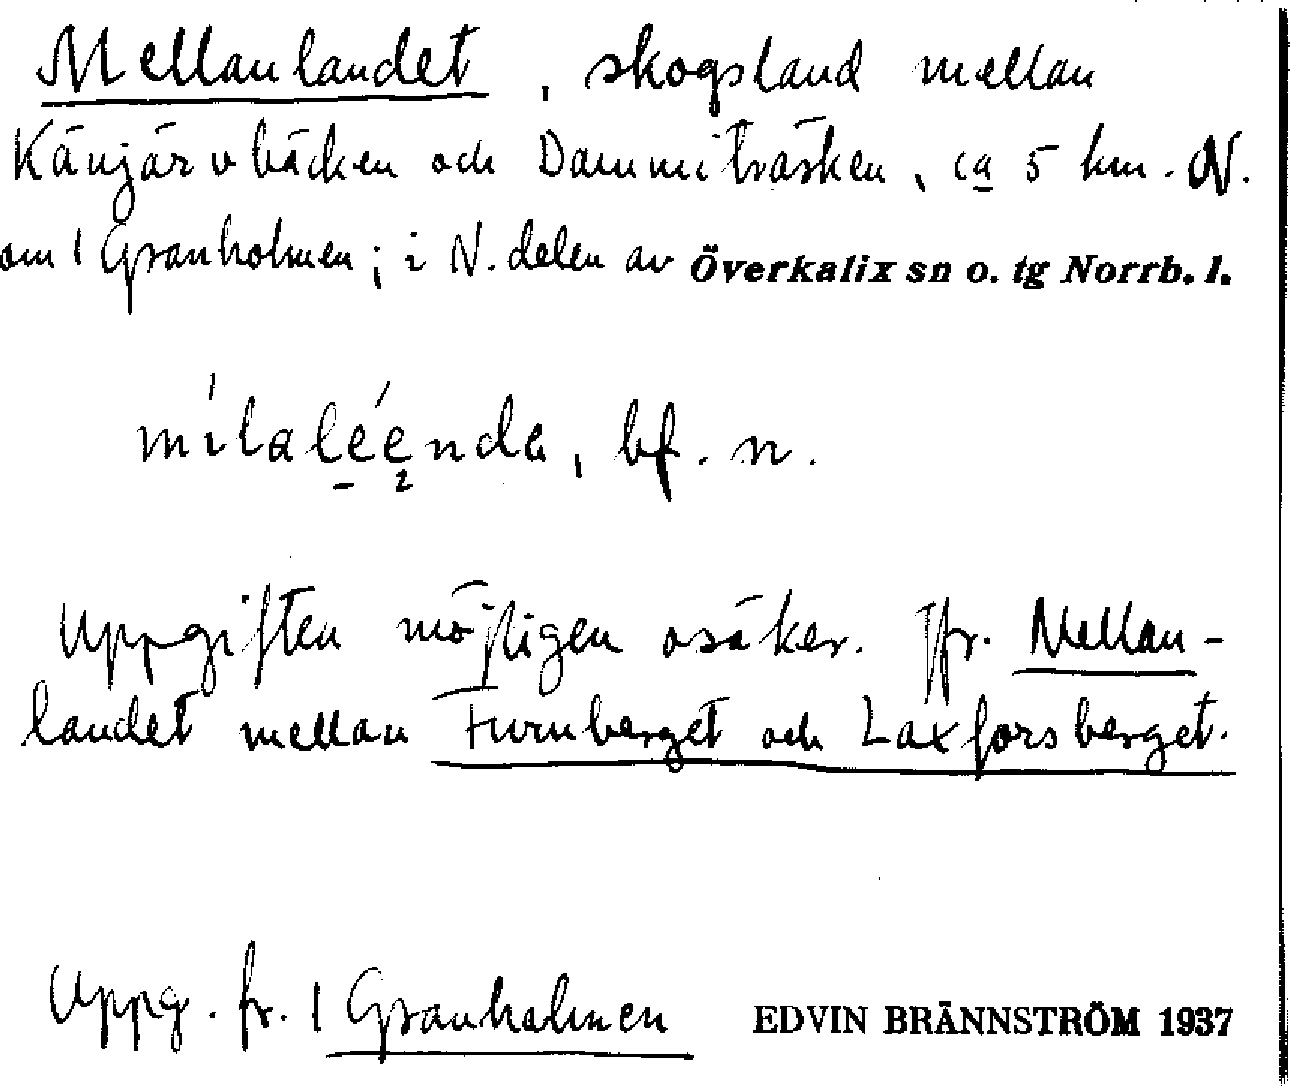 Mellanlandet, skogsland mellan
Känjärvbäcken och Dammiträsken, ca 5 km. N.
om 1 Granholmen; i N. delen av Överkalix sn o. tg Norrb. l.
mílaléenda, bf. n.
Uppgiften möjligen osäker. Jfr. Mellan-
landet mellan Furuberget och Laxforsberget.
Uppg. fr. 1 Granholmen EDVIN BRÄNNSTRÖM 1937